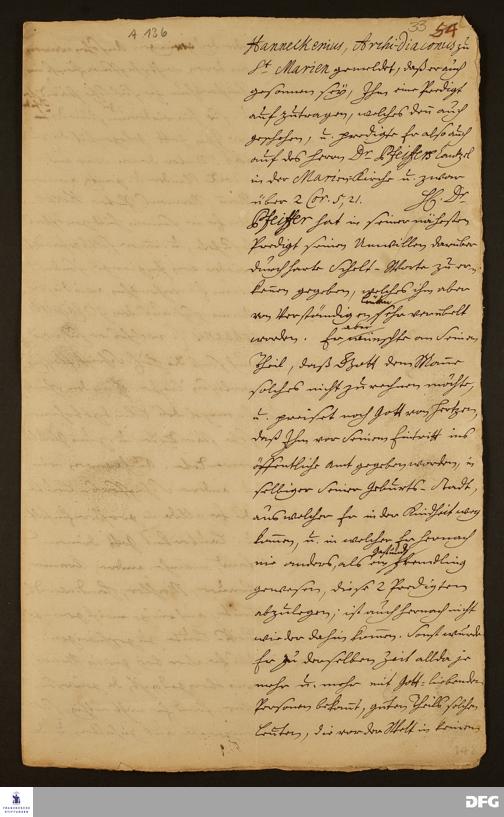 A 136
33 54
Hanneckenius, Archi-Diaconus zu
St. Marien gemeldet, daß er auch
gesonnen sey, Ihm eine Predigt
auf zutragen, welches denn auch
geschehen, u. predigte Er also auch
auf des Herrn Dr. Pfeiffers Cantzel
in der Marienkirche u. zwar
über 2 Cor. 5, 21. H. Dr.
Pfeiffer hat in seiner nähesten
Predigt seinen Unwillen darüber
durch harte Schelt-Worte zu er-
kennen gegeben, welches ihm aber
von Verständigen Leuten sehr verübelt
worden. Er aber wünschte an Seinem
Theil, daß Gott dem Manne
solches nicht zurechnen möchte,
u. preiset noch Gott von Hertzen,
daß Ihm vor Seinem Eintritt ins
öffentliche Amt gegeben worden, in
selbiger Seiner Geburts-Stadt,
aus welcher Er in der Kindheit weg
kommen, u. in welcher Er hernach
nie anders, als ein Frembdling
gewesen, diese 2 Predigten
abzulegen; ist auch hernach nicht
wieder dahin kommen. Sonst wurde
Er zu derselben Zeit allda je
mehr u. mehr mit Gott-liebenden
Personen bekant, guten Theils solchen
Leuten, die vor der Welt in keinem
FRANCKESCHE STIFTUNGEN
DFG